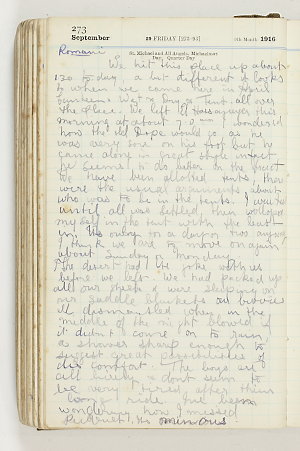 273
September 29 FRIDAY [273-93] 9th Month 1916
St. Michael and All Angels. Michaelmas
Day. Quarter Day
Romani
We hit this place up about
1.30 today. a bit different it looks
to when we came here in
tents all over
the place. We left
morning at about 7.0 wondered
how the old would go as he
was very sore on his foot but he
came along in great style in fact
he seemed to do better in the
We have been allotted tents, there
were the usual arguments about
who was to be in the tents. I waited
until all was settled then
myself in the tent with the least
in. Its only for a day or two anyway
I think we are to move on again
about Sunday or Monday.
The desert had its joke with us
before we left. We had packed up
all our sheets & were sleeping on
our saddle blankets our bivvies
all dismantled when in the
middle of the night blowed if
it didn't come on to rain,
a shower sharp enough to
suggest great possibilities of
dis comfort. The boys are
all here & dont seem to
be very tired after their
long ride. Ive been
wondering how I missed